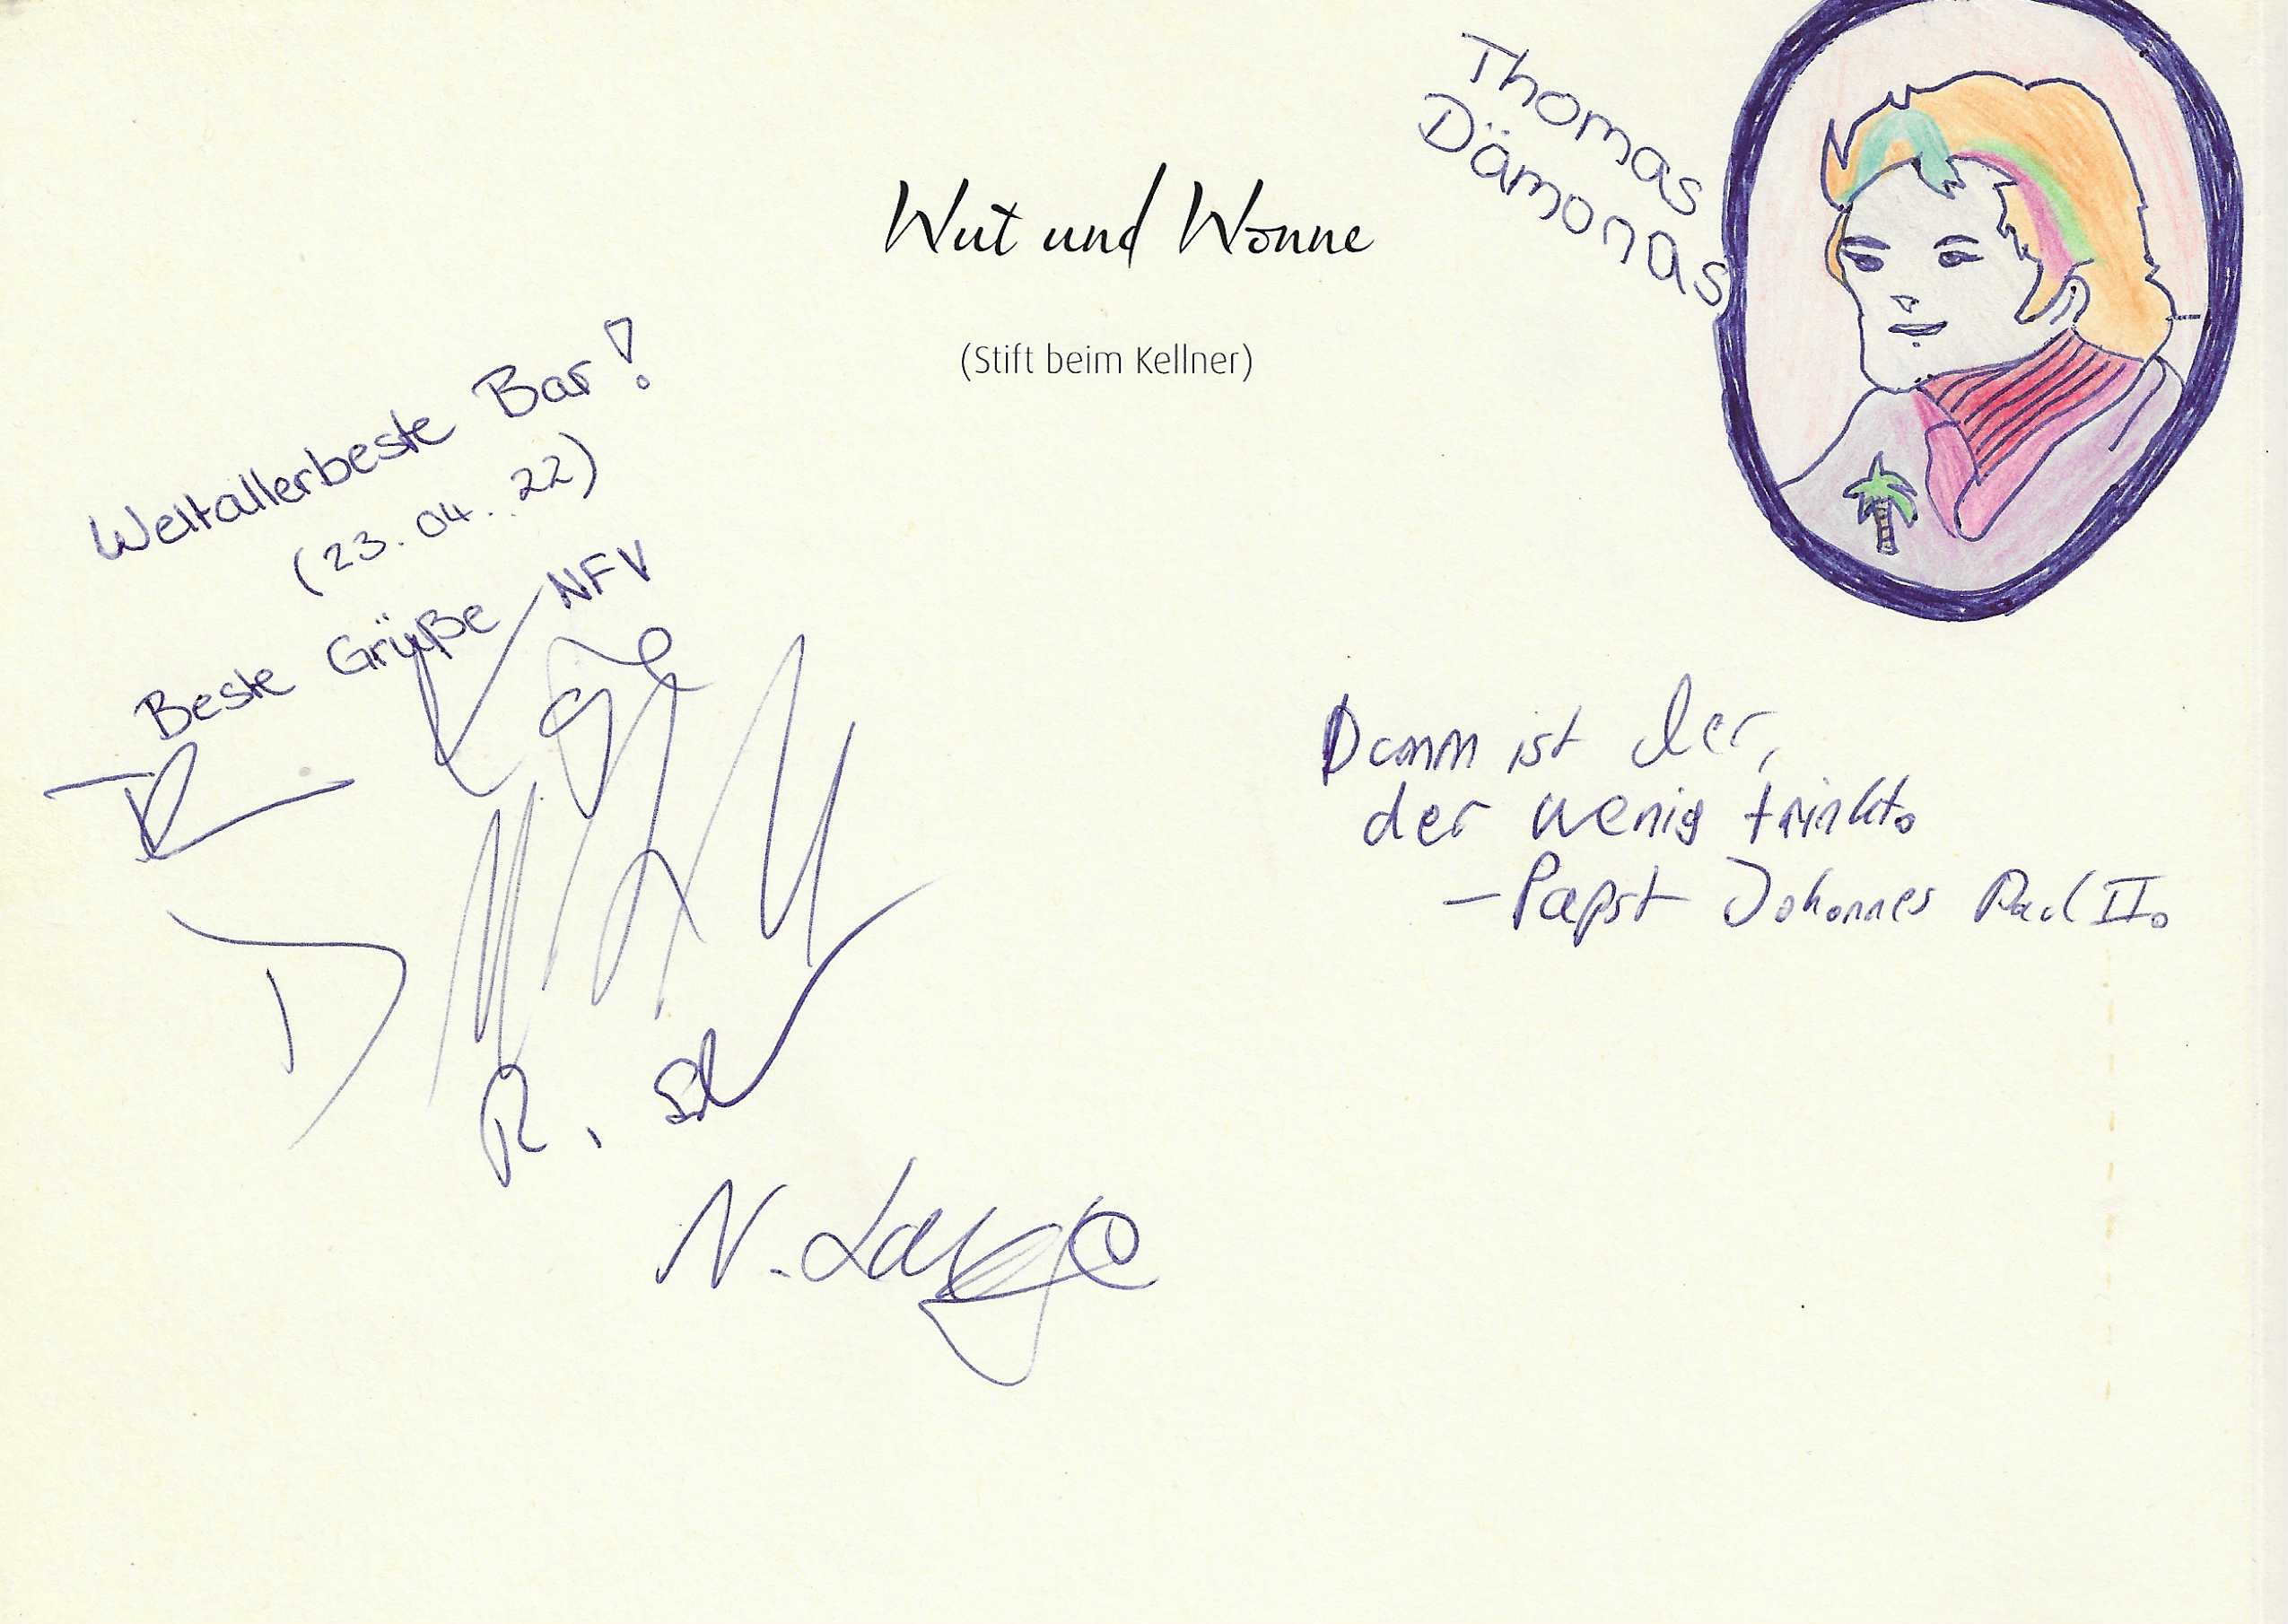 Thomas
Dämonas
Wut und Wonne
(Stift beim Kellner)
Weltallerbeste Bar!
(23.04.22)
Beste Grüße NFV
Dumm ist der,
der wenig trinkt.
- Papst Johannes Paul II.
N. Lange